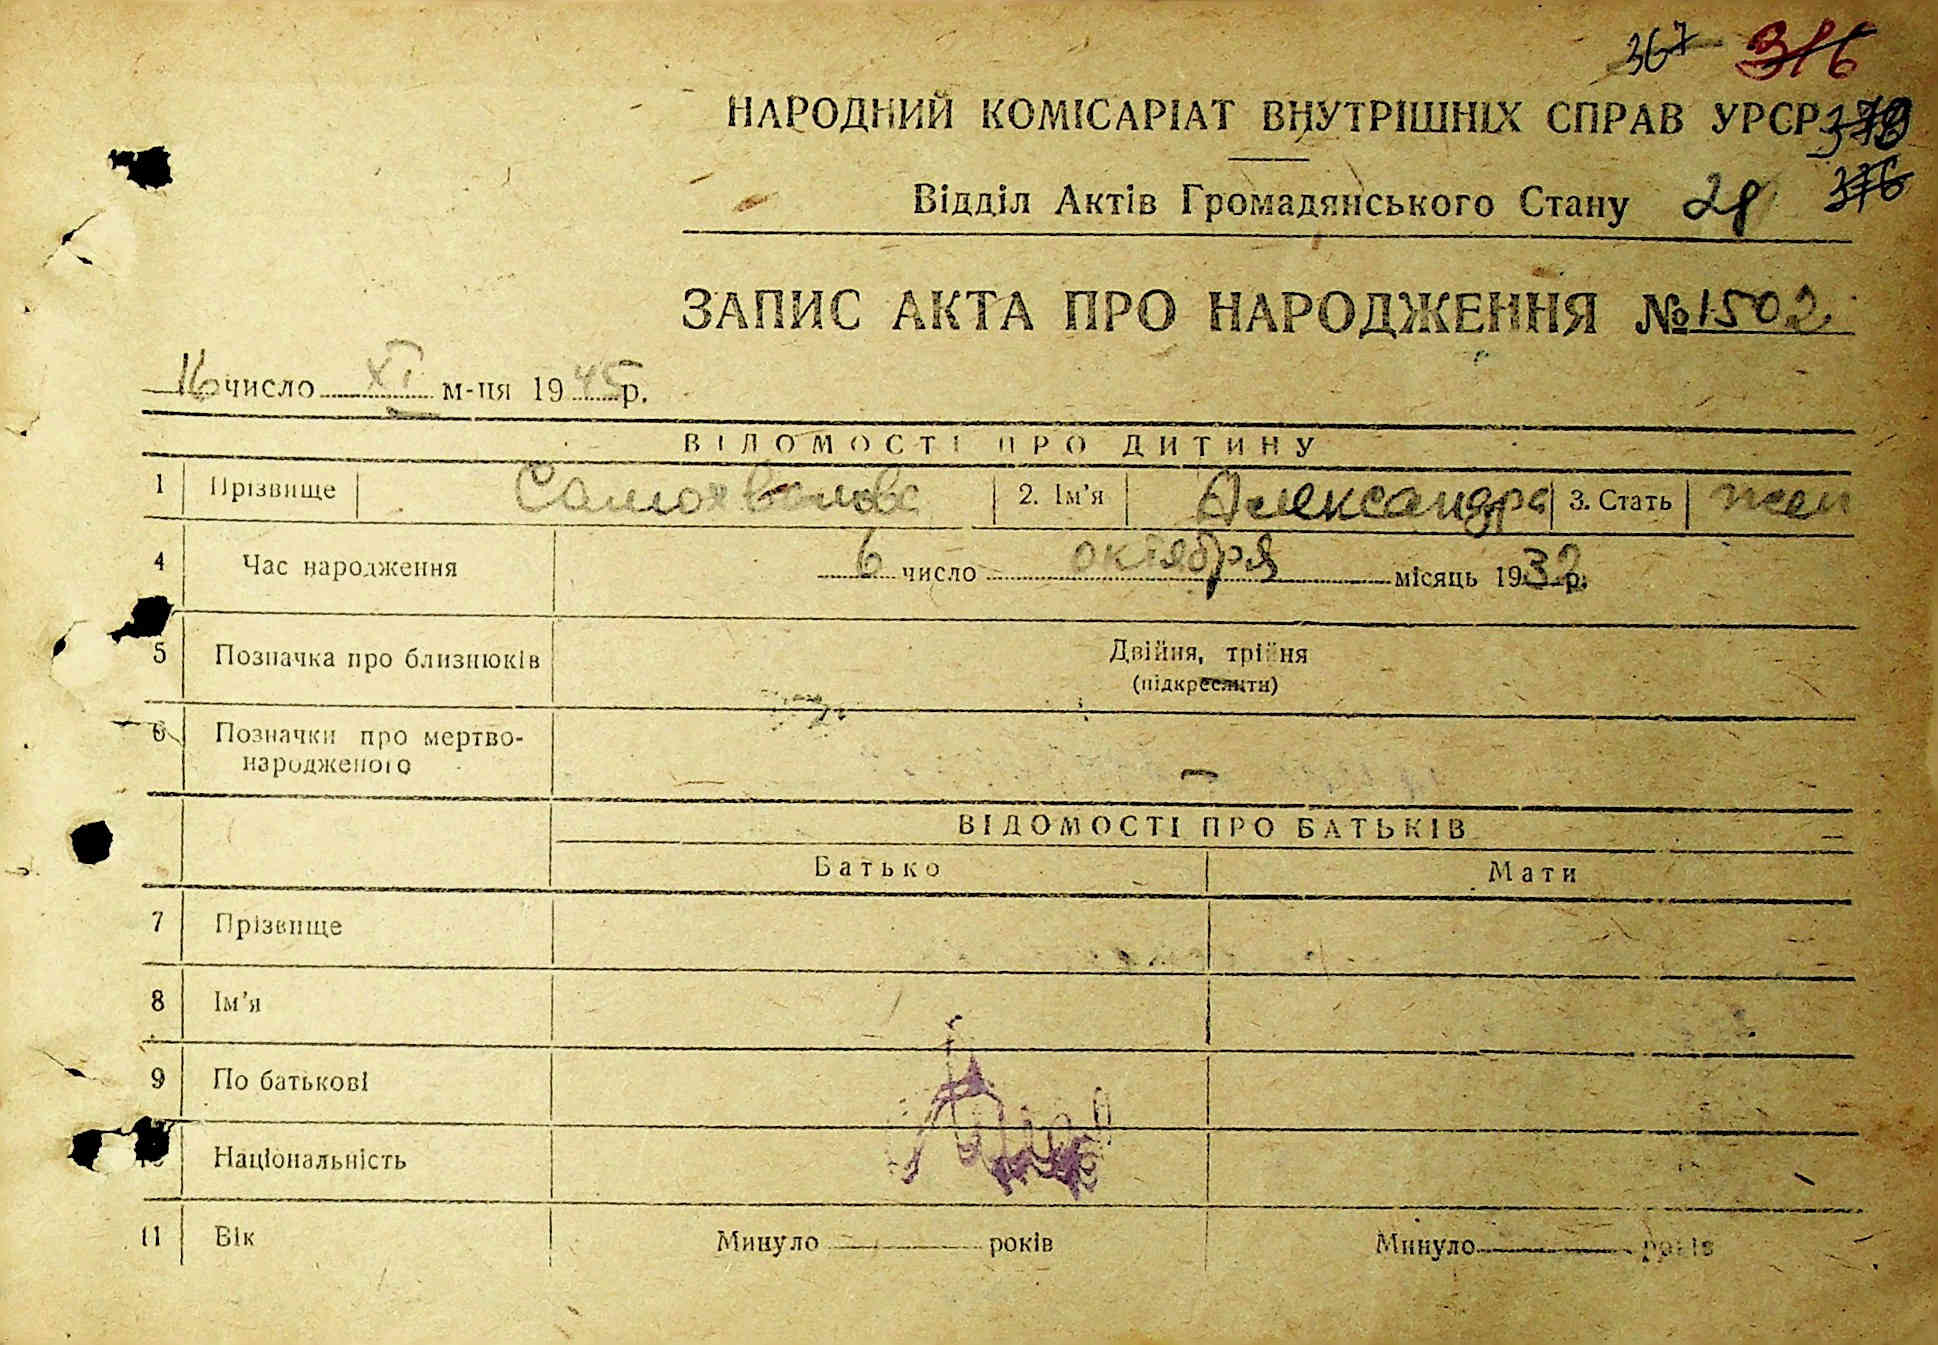 367 316
НАРОДНИЙ КОМІСАРІАТ ВНУТРІШНІХ СПРАВ УРСР 378
Відділ Актів Громадянського Стану 28 376
ЗАПИС АКТА ПРО НАРОДЖЕННЯ № 1502
16 число XI м-ця 1945 р.
ВІДОМОСТІ ПРО ДИТИНУ
1 Прізвище Самохвалова 2. Ім'я Александра 3. Стать жен
4 Час народження 6 число октября місяць 1932 р.
5 Позначка про близнюків Двійня, трійня
(підкреслити)
6 Позначки про мертво-
народженого —
ВІДОМОСТІ ПРО БАТЬКІВ
Батько Мати
7 Прізвище
8 Ім'я
9 По батькові
10 Національність
11 Вік Минуло років Минуло років